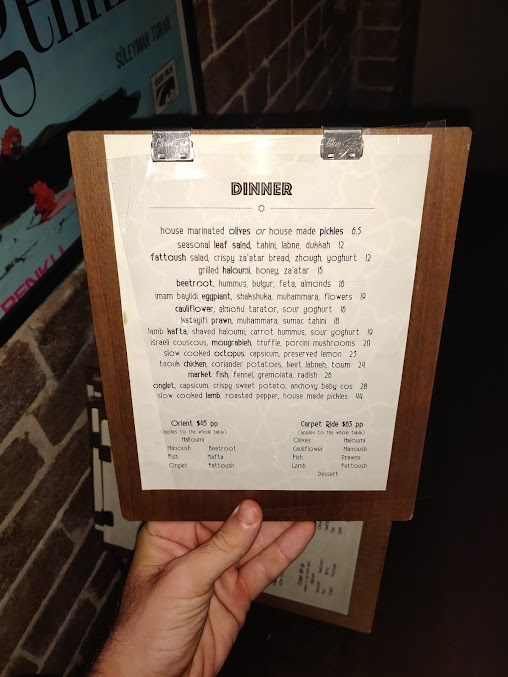 SÜLEYMAN TURAN
RENKLİ
DINNER
house marinated olives or house made pickles 6.5
seasonal leaf salad, tahini, labne, dukkah 12
fattoush salad, crispy za'atar bread, zhough, yoghurt 12
grilled haloumi, honey, za'atar 15
beetroot, hummus, bulgur, feta, almonds 16
imam bayildi eggplant, shakshuka, muhammara, flowers 19
cauliflower, almond tarator, sour yoghurt 16
katayifi prawn, muhammara, sumac tahini 18
lamb kafta, shaved haloumi, carrot hummus, sour yoghurt 19
israeli couscous, mougrabieh, truffle, porcini mushrooms 20
slow cooked octopus, capsicum, preserved lemon 23
taouk chicken, coriander potatoes, beet labneh, toum 24
market fish, fennel gremolata, radish 26
onglet, capsicum, crispy sweet potato, anchovy baby cos 28
slow cooked lamb, roasted pepper, house made pickles 44
Orient $45 pp
(applies to the whole table)
Halloumi
Manoush Beetroot
Fish Kafta
Onglet Fattoush
Carpet Ride $65 pp
(applies to the whole table)
Olives Haloumi
Cauliflower Manoush
Fish Prawns
Lamb Fattoush
Dessert